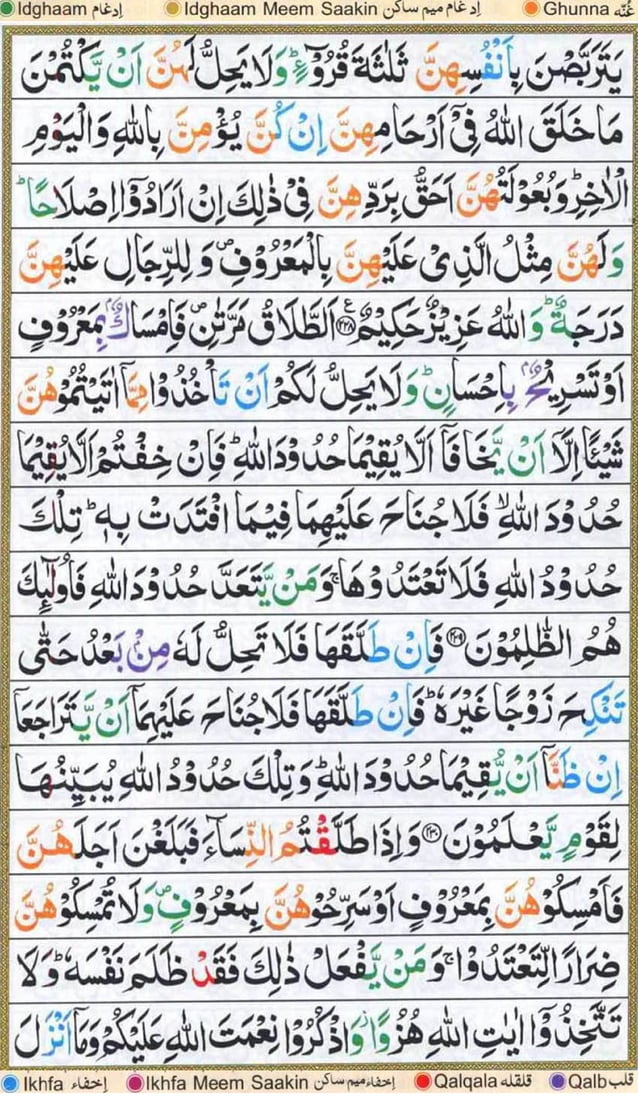 Idghaam ادغام Idghaam Meem Saakin ادغام میم ساکن Ghunna غُنّه
یَتَرَبَّصْنَ بِاَنْفُسِهِنَّ ثَلٰثَةَ قُرُوْٓءٍ ؕ وَلَا یَحِلُّ لَهُنَّ اَنْ یَّكْتُمْنَ
مَا خَلَقَ اللّٰهُ فِیْۤ اَرْحَامِهِنَّ اِنْ كُنَّ یُؤْمِنَّ بِاللّٰهِ وَالْیَوْمِ
الْاٰخِرِ ؕ وَبُعُوْلَتُهُنَّ اَحَقُّ بِرَدِّهِنَّ فِیْ ذٰلِكَ اِنْ اَرَادُوْۤا اِصْلَاحًا ؕ
وَلَهُنَّ مِثْلُ الَّذِیْ عَلَیْهِنَّ بِالْمَعْرُوْفِ ۪ وَلِلرِّجَالِ عَلَیْهِنَّ
دَرَجَةٌ ؕ وَاللّٰهُ عَزِیْزٌ حَكِیْمٌ ﴿۲۲۸﴾ اَلطَّلَاقُ مَرَّتٰنِ ۪ فَاِمْسَاكٌۢ بِمَعْرُوْفٍ
اَوْ تَسْرِیْحٌۢ بِاِحْسَانٍ ؕ وَلَا یَحِلُّ لَكُمْ اَنْ تَاْخُذُوْا مِمَّاۤ اٰتَیْتُمُوْهُنَّ
شَیْئًا اِلَّاۤ اَنْ یَّخَافَاۤ اَلَّا یُقِیْمَا حُدُوْدَ اللّٰهِ ؕ فَاِنْ خِفْتُمْ اَلَّا یُقِیْمَا
حُدُوْدَ اللّٰهِ ۙ فَلَا جُنَاحَ عَلَیْهِمَا فِیْمَا افْتَدَتْ بِهٖ ؕ تِلْكَ
حُدُوْدُ اللّٰهِ فَلَا تَعْتَدُوْهَا ۚ وَمَنْ یَّتَعَدَّ حُدُوْدَ اللّٰهِ فَاُولٰٓئِكَ
هُمُ الظّٰلِمُوْنَ ﴿۲۲۹﴾ فَاِنْ طَلَّقَهَا فَلَا تَحِلُّ لَهٗ مِنْۢ بَعْدُ حَتّٰی
تَنْكِحَ زَوْجًا غَیْرَهٗ ؕ فَاِنْ طَلَّقَهَا فَلَا جُنَاحَ عَلَیْهِمَاۤ اَنْ یَّتَرَاجَعَاۤ
اِنْ ظَنَّاۤ اَنْ یُّقِیْمَا حُدُوْدَ اللّٰهِ ؕ وَتِلْكَ حُدُوْدُ اللّٰهِ یُبَیِّنُهَا
لِقَوْمٍ یَّعْلَمُوْنَ ﴿۲۳۰﴾ وَاِذَا طَلَّقْتُمُ النِّسَآءَ فَبَلَغْنَ اَجَلَهُنَّ
فَاَمْسِكُوْهُنَّ بِمَعْرُوْفٍ اَوْ سَرِّحُوْهُنَّ بِمَعْرُوْفٍ ۪ وَلَا تُمْسِكُوْهُنَّ
ضِرَارًا لِّتَعْتَدُوْا ۚ وَمَنْ یَّفْعَلْ ذٰلِكَ فَقَدْ ظَلَمَ نَفْسَهٗ ؕ وَلَا
تَتَّخِذُوْۤا اٰیٰتِ اللّٰهِ هُزُوًا ؗ وَاذْكُرُوْا نِعْمَتَ اللّٰهِ عَلَیْكُمْ وَمَاۤ اَنْزَلَ
Ikhfa إخفاء Ikhfa Meem Saakin إخفاء میم ساکن Qalqala قلقله Qalb قلب